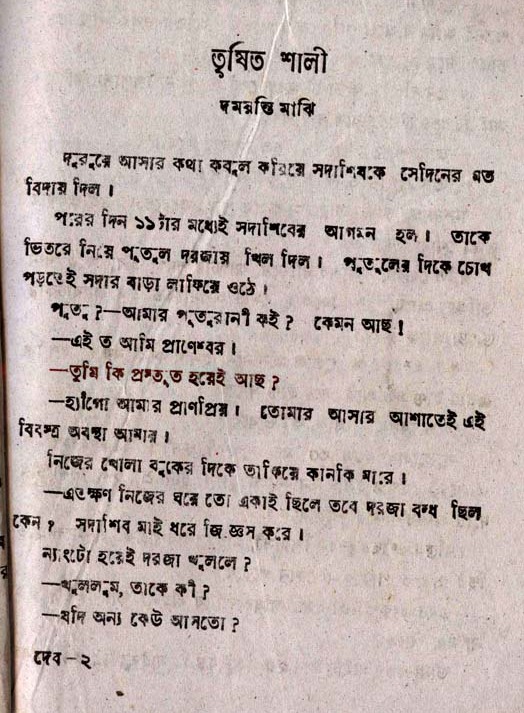 তৃষিত শালী
দময়ন্তি মাঝি
দুপুরে আসার কথা কবুল করিয়ে সদাশিবকে সেদিনের মত
বিদায় দিল।
পরের দিন ১১টার মধ্যেই সদাশিবের আগমন হল। তাকে
ভিতরে নিয়ে পুতুল দরজায় খিল দিল। পুতুলের দিকে চোখ
পড়তেই সদার বাড়া লাফিয়ে ওঠে।
পুতু?—আমার পুতুরানী কই? কেমন আছ!
—এই ত আমি প্রাণেশ্বর।
—তুমি কি প্রস্তুত হয়েই আছ?
—হ্যাঁগো আমার প্রাণপ্রিয়। তোমার আসার আশাতেই এই
বিবস্ত্র অবস্থা আমার।
নিজের খোলা বুকের দিকে তাকিয়ে কানকি মারে।
—এতক্ষণ নিজের ঘরে তো একাই ছিলে তবে দরজা বন্ধ ছিল
কেন? সদাশিব মাই ধরে জিজ্ঞেস করে।
ন্যাংটো হয়েই দরজা খুললে?
—খুললুম, তাকে কী?
—যদি অন্য কেউ আসতো?
দেব—২